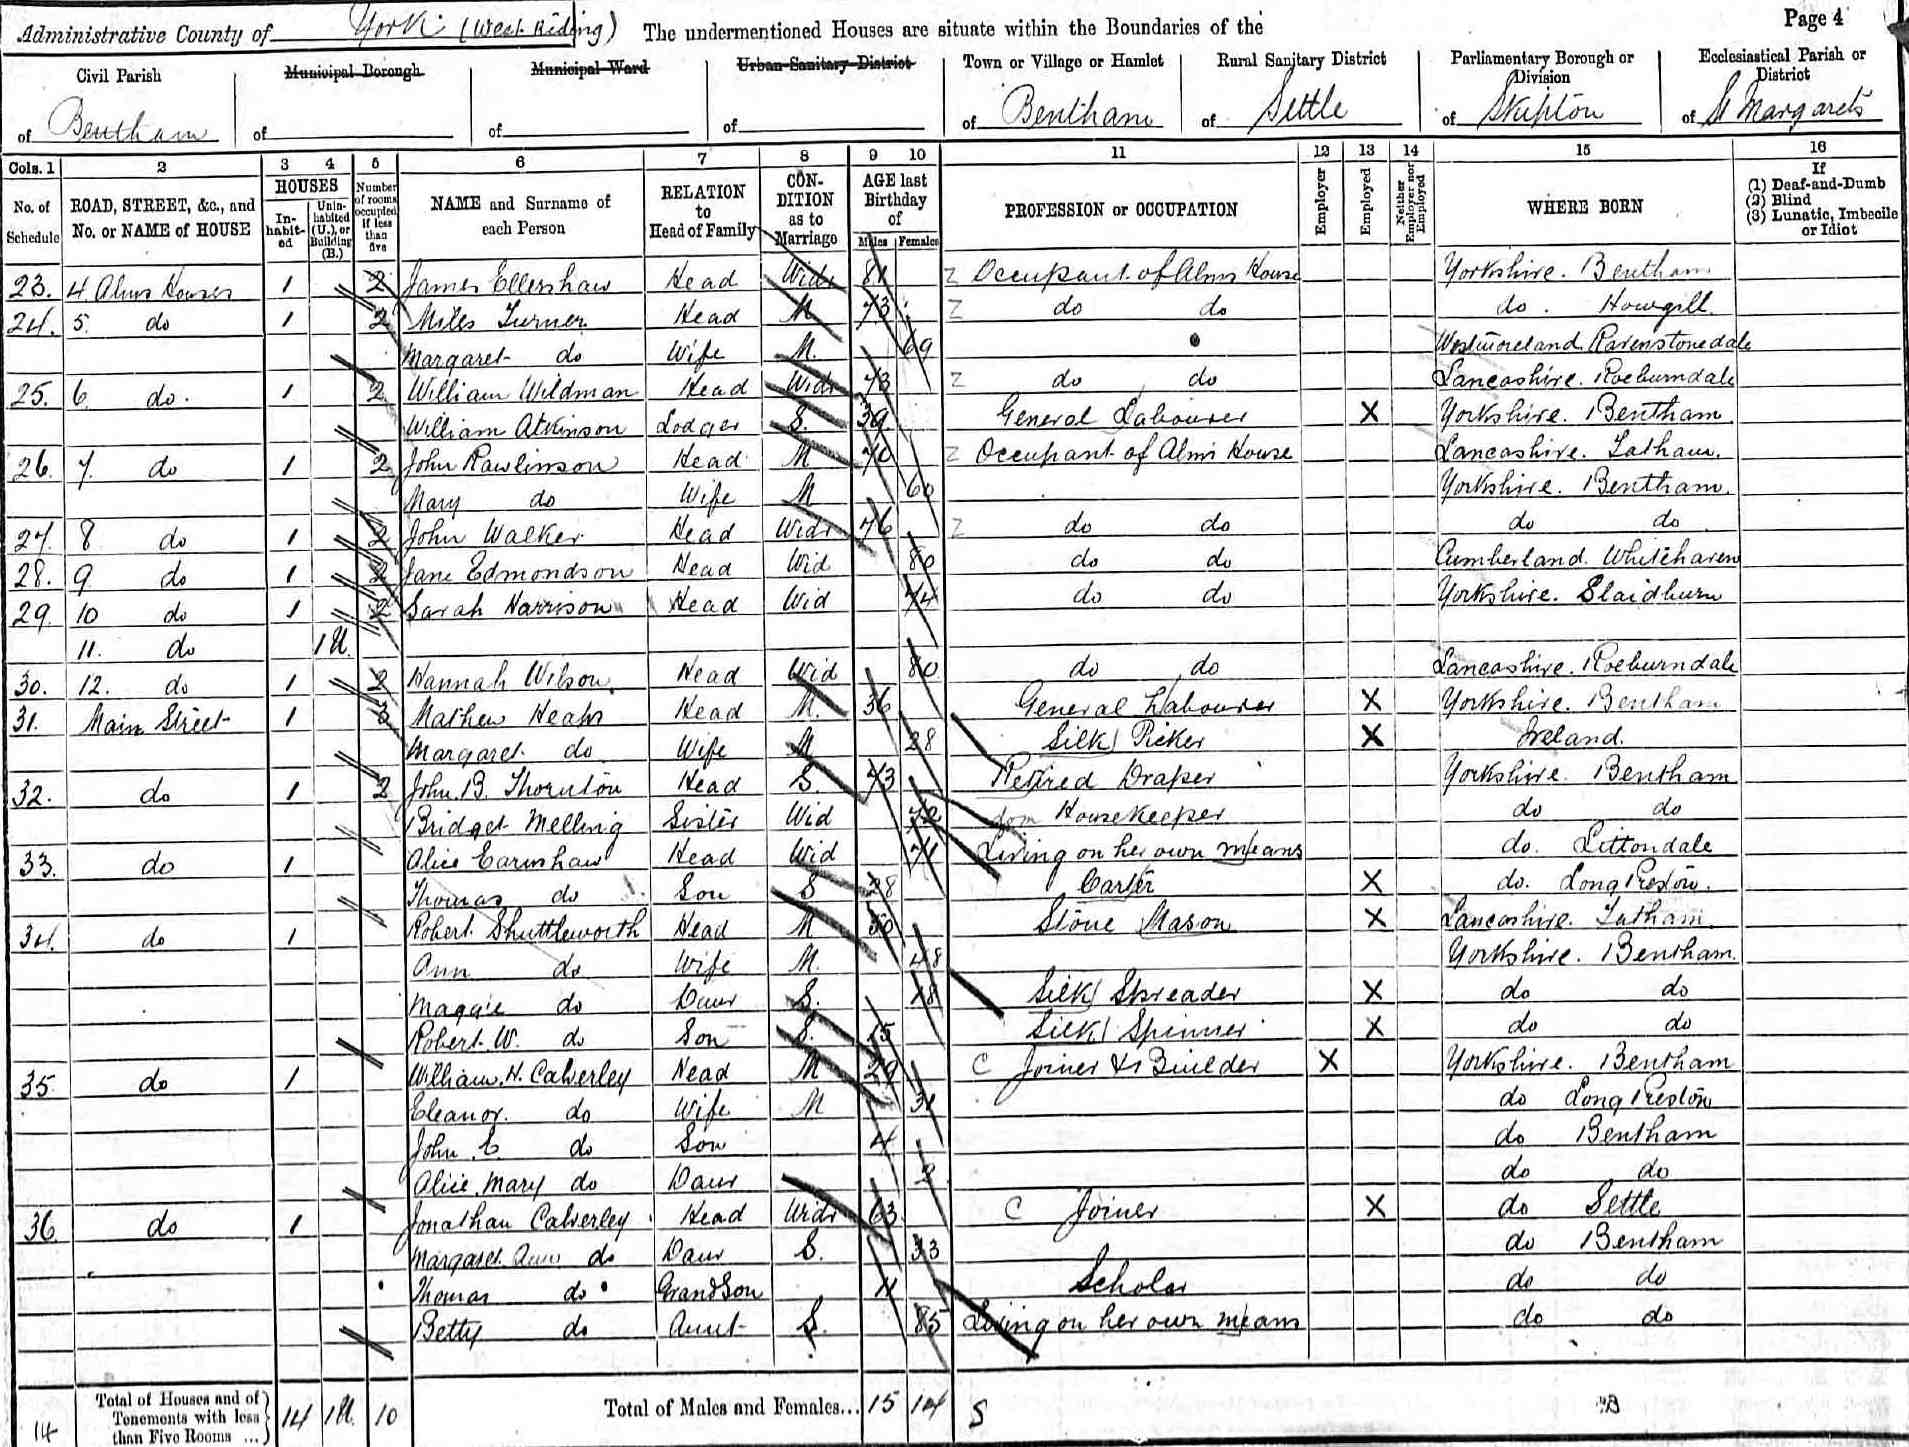 Administrative County of York (West Riding) The undermentioned Houses are situate within the Boundaries of the Page 4
Civil Parish Municipal Borough Municipal Ward Urban Sanitary District Town or Village or Hamlet Rural Sanitary District Parliamentary Borough or Division Ecclesiastical Parish or District
of Bentham of of of of Bentham of Settle of Skipton of St Margarets
Cols. 1 2 3 4 5 6 7 8 9 10 11 12 13 14 15 16
No. of Schedule ROAD, STREET, &c., and No. or NAME of HOUSE HOUSES Inhabited Uninhabited (U.), or Building (B.) Number of rooms occupied if less than five NAME and Surname of each Person RELATION to Head of Family CONDITION as to Marriage AGE last Birthday of Males Females PROFESSION or OCCUPATION Employer Employed Neither Employer nor Employed WHERE BORN If (1) Deaf-and-Dumb (2) Blind (3) Lunatic, Imbecile or Idiot
23. 4 Alms Houses 1 2 James Ellershaw Head Widr 81 Z Occupant of Alms House Yorkshire. Bentham
24. 5. do 1 2 Miles Turner Head M 73 Z do do do. Howgill.
Margaret do Wife M. 69 Westmoreland Ravenstonedale
25. 6. do. 1 2 William Wildman Head Widr 73 Z do do Lancashire. Roeburndale
William Atkinson Lodger S. 39 General Labourer X Yorkshire. Bentham
26. 7. do 1 2 John Rawlinson Head M 70 Z Occupant of Alms House Lancashire. Tatham.
Mary do Wife M 60 Yorkshire. Bentham.
27. 8 do 1 2 John Walker Head Widr 76 Z do do do do
28. 9 do 1 2 Jane Edmondson Head Wid 80 do do Cumberland Whitehaven
29. 10 do 1 2 Sarah Harrison Head Wid 74 do do Yorkshire. Slaidburn
11. do 1 U.
30. 12. do 1 2 Hannah Wilson Head Wid 80 do do Lancashire. Roeburndale
31. Main Street 1 Mathew Heaps Head M. 36 General Labourer X Yorkshire. Bentham
Margaret do Wife M 28 Silk Picker X Ireland.
32. do 1 2 John. B. Thornton Head S. 73 Retired Draper Yorkshire. Bentham
Bridget Melling Sister Wid Housekeeper do do
33. do 1 Alice Earnshaw Head Wid 71 Living on her own means do. Littondale
Thomas do Son S Carter X do. Long Preston.
34. do 1 Robert Shuttleworth Head M 50 Stone Mason X Lancashire. Tatham.
Ann do Wife M. 48 Yorkshire. Bentham.
Maggie do Daur S. 18 Silk Spreader X do do
Robert. W. do Son S. 15 Silk Spinner X do do
35. do 1 William. H. Calverley Head M 29 C Joiner & Builder X Yorkshire. Bentham
Eleanor. do Wife M 31 do Long Preston
John. C do Son 4 do Bentham
Alice. Mary do Daur 2 do do
36. do 1 Jonathan Calverley Head Widr 63 C Joiner X do Settle
Margaret Ann do Daur S. 33 do Bentham
Thomas do GrandSon 11 Scholar do do
Betty do Aunt S. 85 Living on her own means do do
14 Total of Houses and of Tenements with less than Five Rooms ... 14 1U. 10 Total of Males and Females... 15 14 S